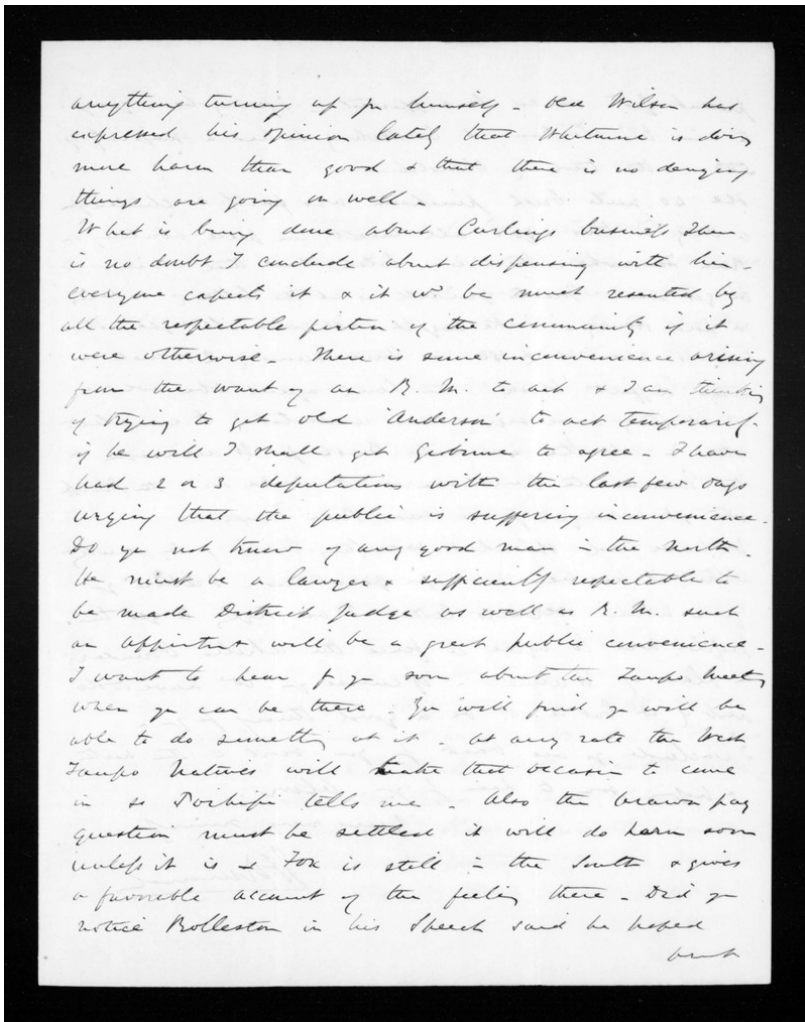 anything turning up for himself - Old Wilson has
expressed his opinion lately that Whitmore is doing
more harm than good & that there is no denying
things are going on well -
What is being done about Curlings business There
is no doubt I conclude about dispensing with him -
everyone expects it & it wd be much resented by
all the respectable portion of the community if it
were otherwise - There is some inconvenience arising
from the want of an R. M. to act & I am thinking
of trying to get old Anderson to act temporarily -
if he will I shall get Gisborne to agree - I have
had 2 or 3 deputations with the last few days
urging that the public is suffering inconvenience -
Do yu not know of any good man in the North -
He must be a lawyer & sufficiently respectable to
be made District Judge as well as R. M. such
an appointmt will be a great public convenience -
I want to hear fm yu soon about the Taupo Meetg
when yu can be there - You will find yu will be
able to do something at it - at any rate the West
Taupo Natives will take that occasion to come
in so tells me - Also the pay
question must be settled it will do harm soon
unless it is - Fox is still in the South & gives
a favorable account of the feeling there - Did yu
notice Rolleston in his Speech said he hoped